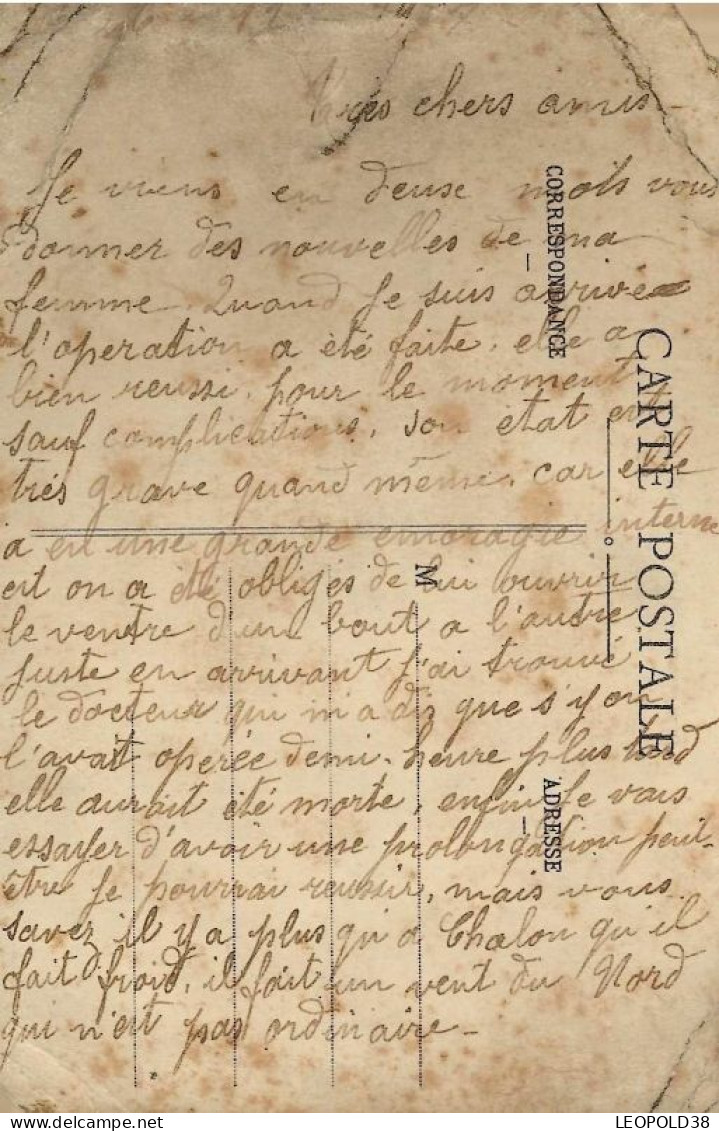 Très chers amis -
Je viens en deuse mots vous
donner des nouvelles de ma
femme. Quand Je suis arrivé
l'operation a été faite, elle a
bien reussi, pour le moment
sauf complications, son état est
très grave quand même, car elle
a eu une grande emoragie interne
et on a été obligés de lui ouvrir
le ventre d'un bout a l'autre
juste en arrivant j'ai trouvé
le docteur qui m'a dis que s'y on
l'avait operée demi-heure plus tard
elle aurait été morte, enfin Je vais
essayer d'avoir une prolongation peut-
être Je pourrai reussir, mais vous
savez il y a plus qu'a Chalon qu'il
fait froid, il fait un vent du Nord
qui n'est pas ordinaire -
CARTE POSTALE
CORRESPONDANCE
ADRESSE
M
LEOPOLD38